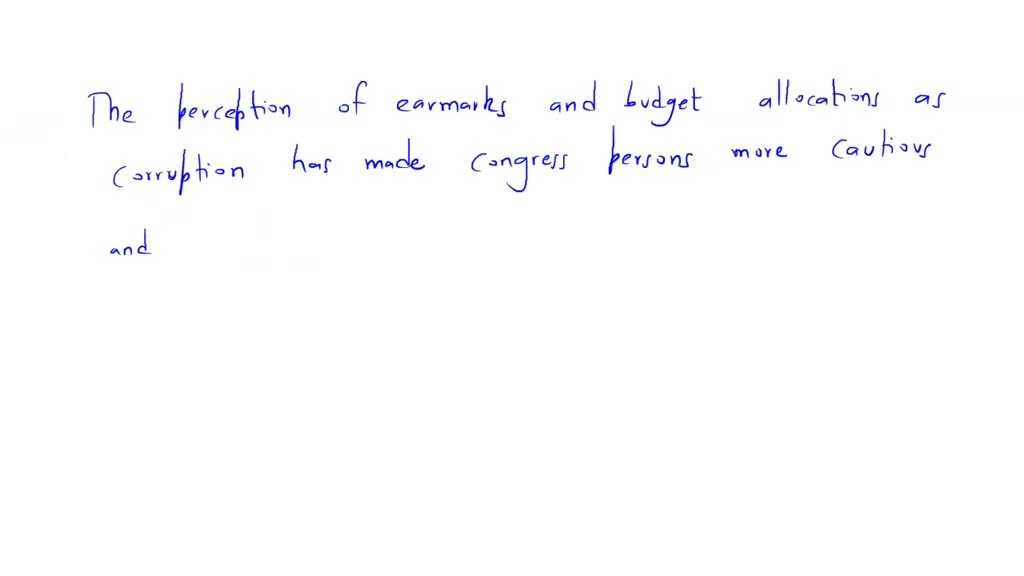 The perception of earmarks and budget allocations as
corruption has made congress persons more cautious
and